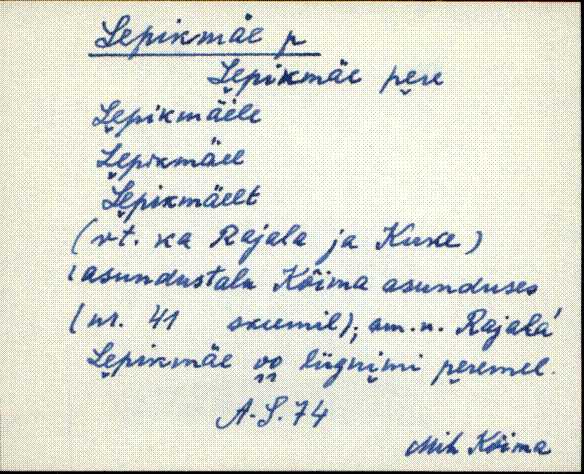 Lepikmäe p
Lepikmäe pere
Lepikmäele
Lepikmäel
Lepikmäelt
(vt. ka Rajala ja Kuke)
asundustalu Kõima asunduses
(nr. 41 skeemil); am.n. Rajala
Lepikmäe oo liignimi peremel.
A.S. 74
Mih Kõima